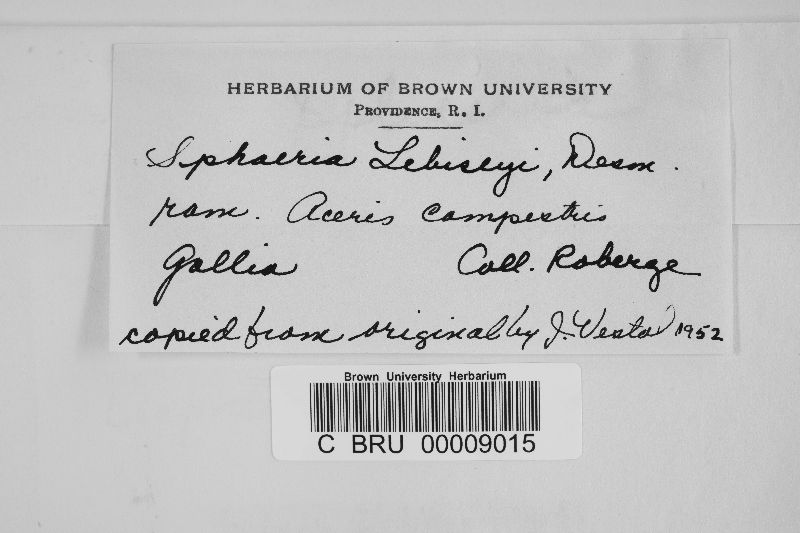 HERBARIUM OF BROWN UNIVERSITY
PROVIDENCE, R. I.
Sphaeria Lebiseyi, Desm.
ram. Aceris campestris
Gallia Coll. Roberge
copied from original by J. Vesta 1952
Brown University Herbarium
C BRU 00009015